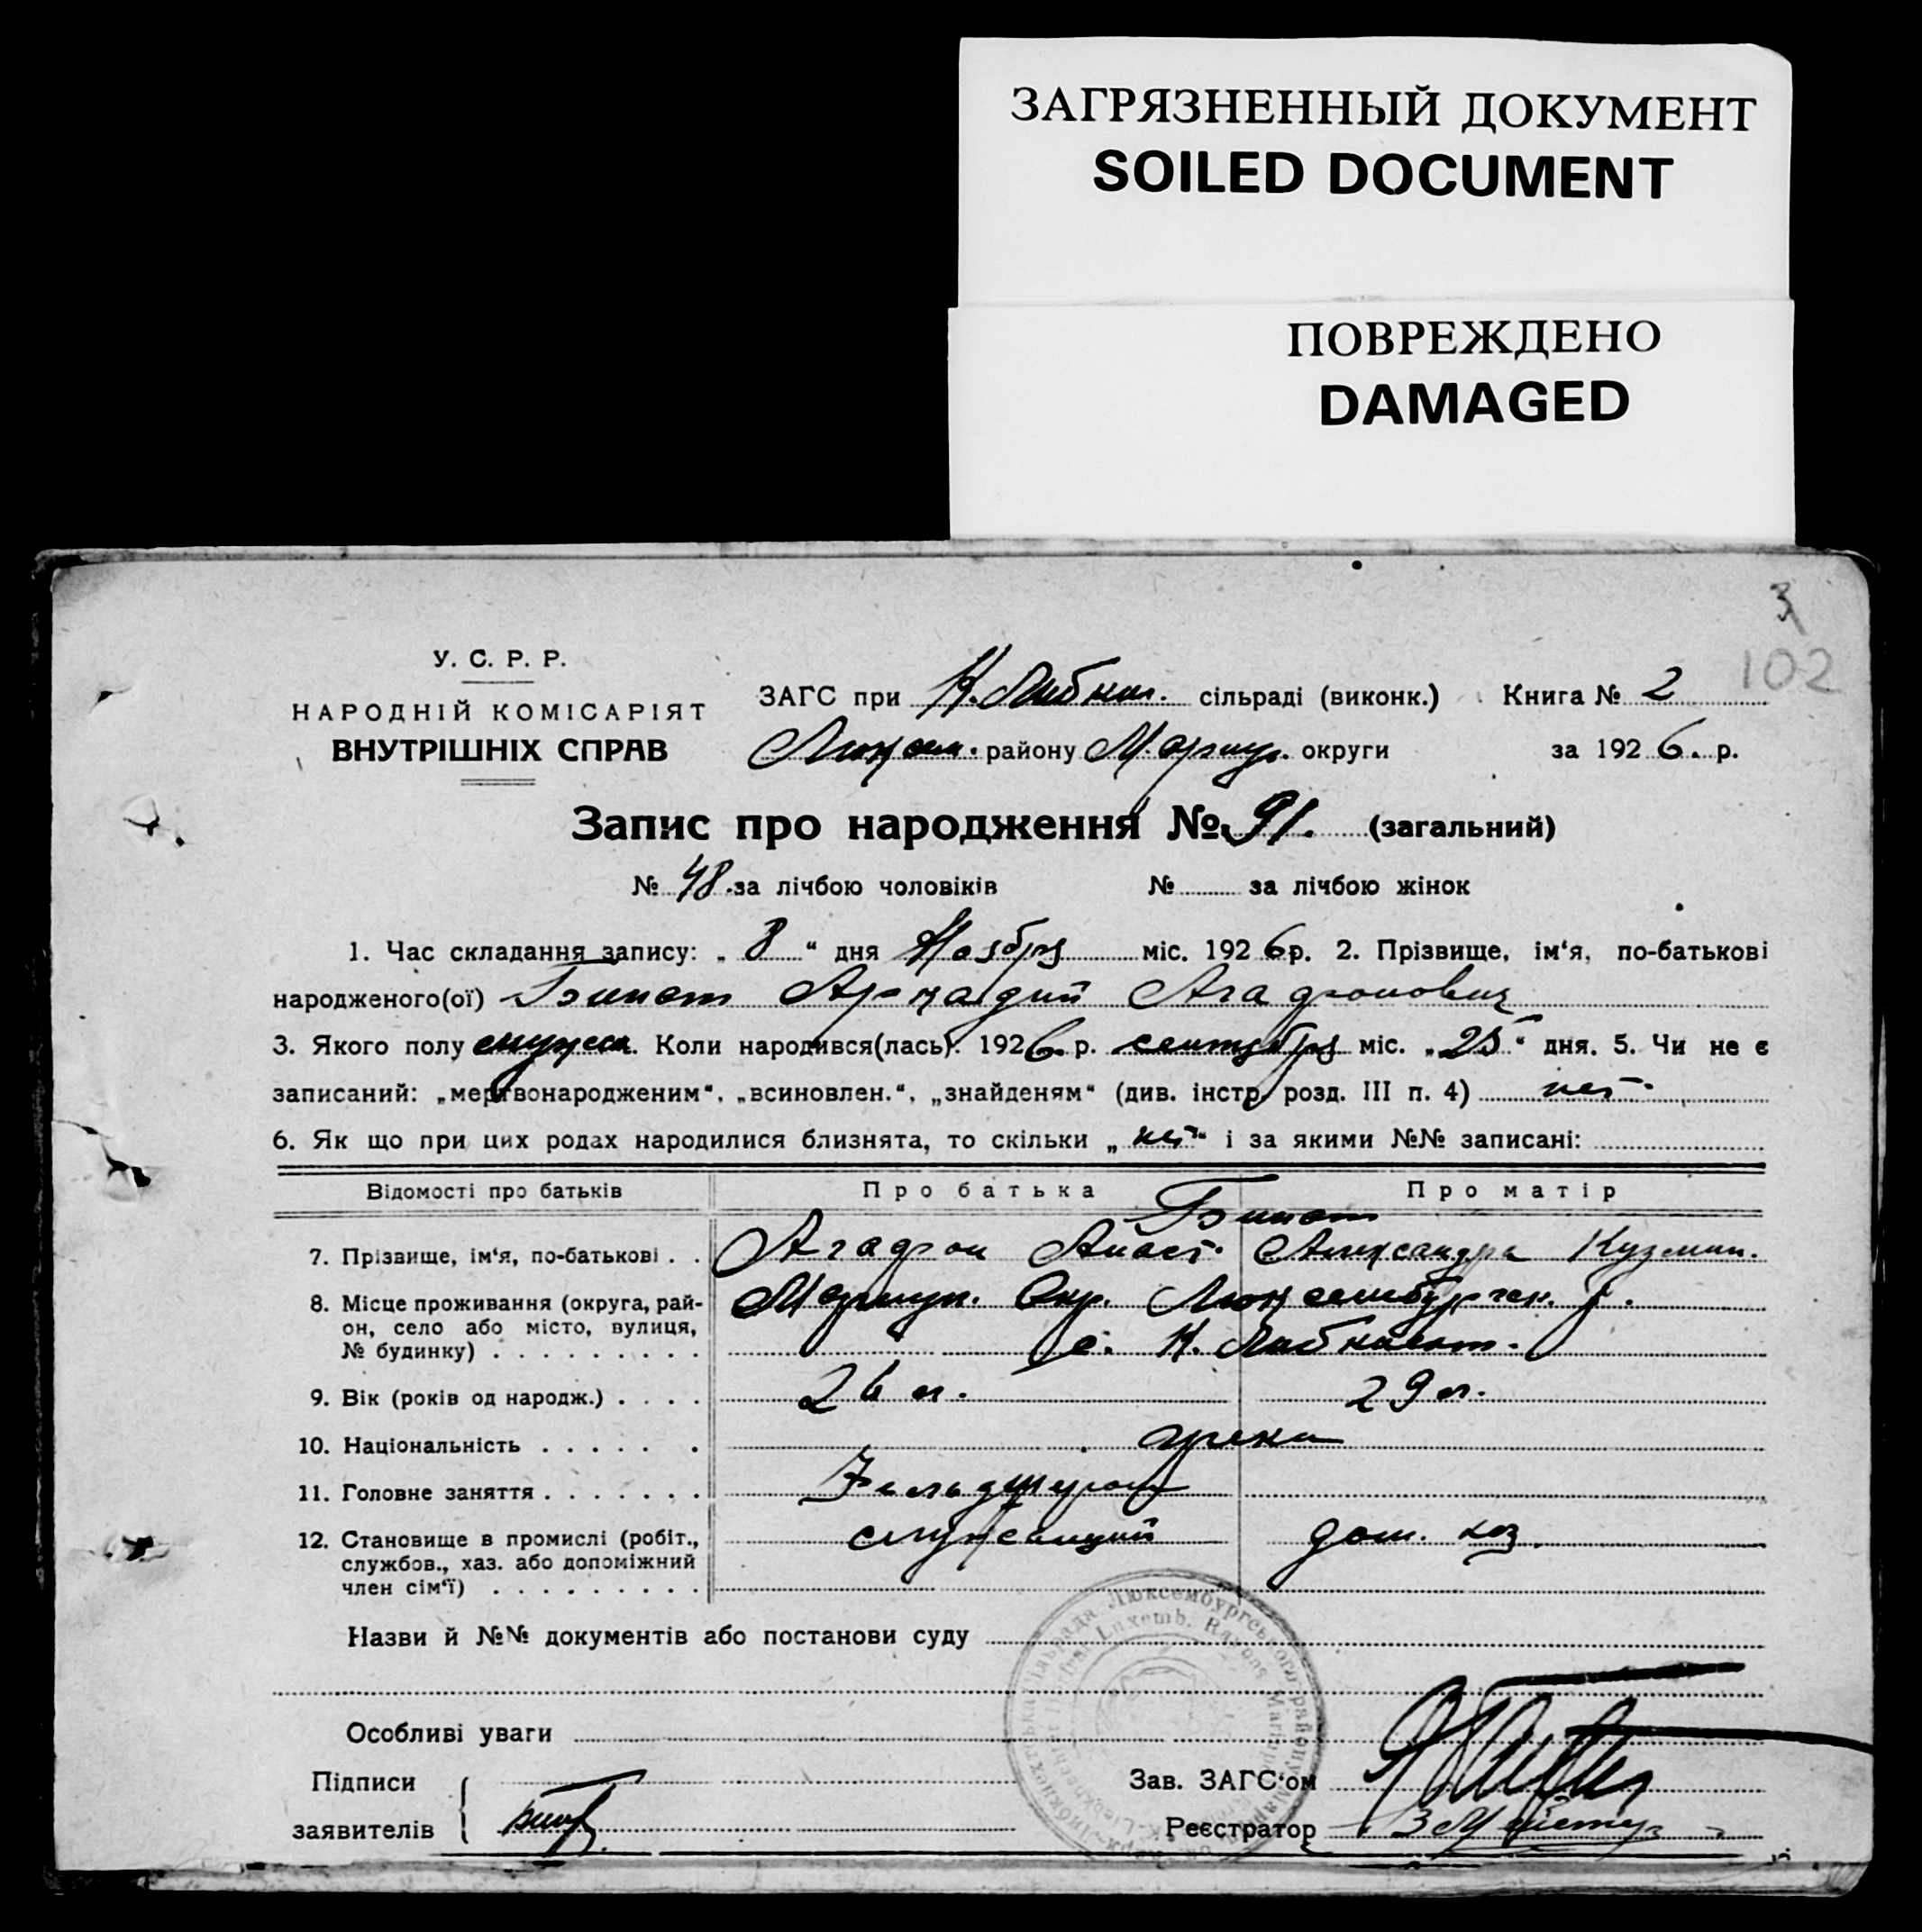 ЗАГРЯЗНЕННЫЙ ДОКУМЕНТ
SOILED DOCUMENT
ПОВРЕЖДЕНО
DAMAGED
3
102
У. С. Р. Р.
НАРОДНІЙ КОМІСАРІЯТ
ВНУТРІШНІХ СПРАВ
ЗАГС при К. Либкн. сільраді (виконк.) Книга № 2
Люксем. району Мариуп. округи за 1926. р.
Запис про народження № 91. (загальний)
№ 48. за лічбою чоловіків № за лічбою жінок
1. Час складання запису: „ 8 “ дня Ноября міс. 1926 р. 2. Прізвище, ім‘я, по-батькові
народженого(ої) Аркадий Агафонович
3. Якого полу мужеск. Коли народився(лась): 1926 р. сентября міс. „ 25 “ дня. 5. Чи не є
записаний: „мертвонародженим“, „всиновлен.“, „знайденям“ (див. інстр. розд. III п. 4) нет.
6. Як що при цих родах народилися близнята, то скільки „ нет “ і за якими №№ записані:
Відомості про батьків Про батька Про матір
7. Прізвище, ім‘я, по-батькові . . Агафон Александра Кузмин.
8. Місце проживання (округа, рай- Мариуп. Окр. Люксембургск. р.
он, село або місто, вулиця,
№ будинку) . . . . . . . . . с. К. Либкнехт.
9. Вік (років од народж.) . . . . 26 л. 29 л.
10. Національність . . . . . . греки
11. Головне заняття . . . . . . . Фельдшером
12. Становище в промислі (робіт., служащий дом. хоз.
службов., хаз. або допоміжний
член сім‘ї) . . . . . . . . .
Назви й №№ документів або постанови суду
Особливі уваги
Підписи
заявителів
Зав. ЗАГС‘ом
Реєстратор